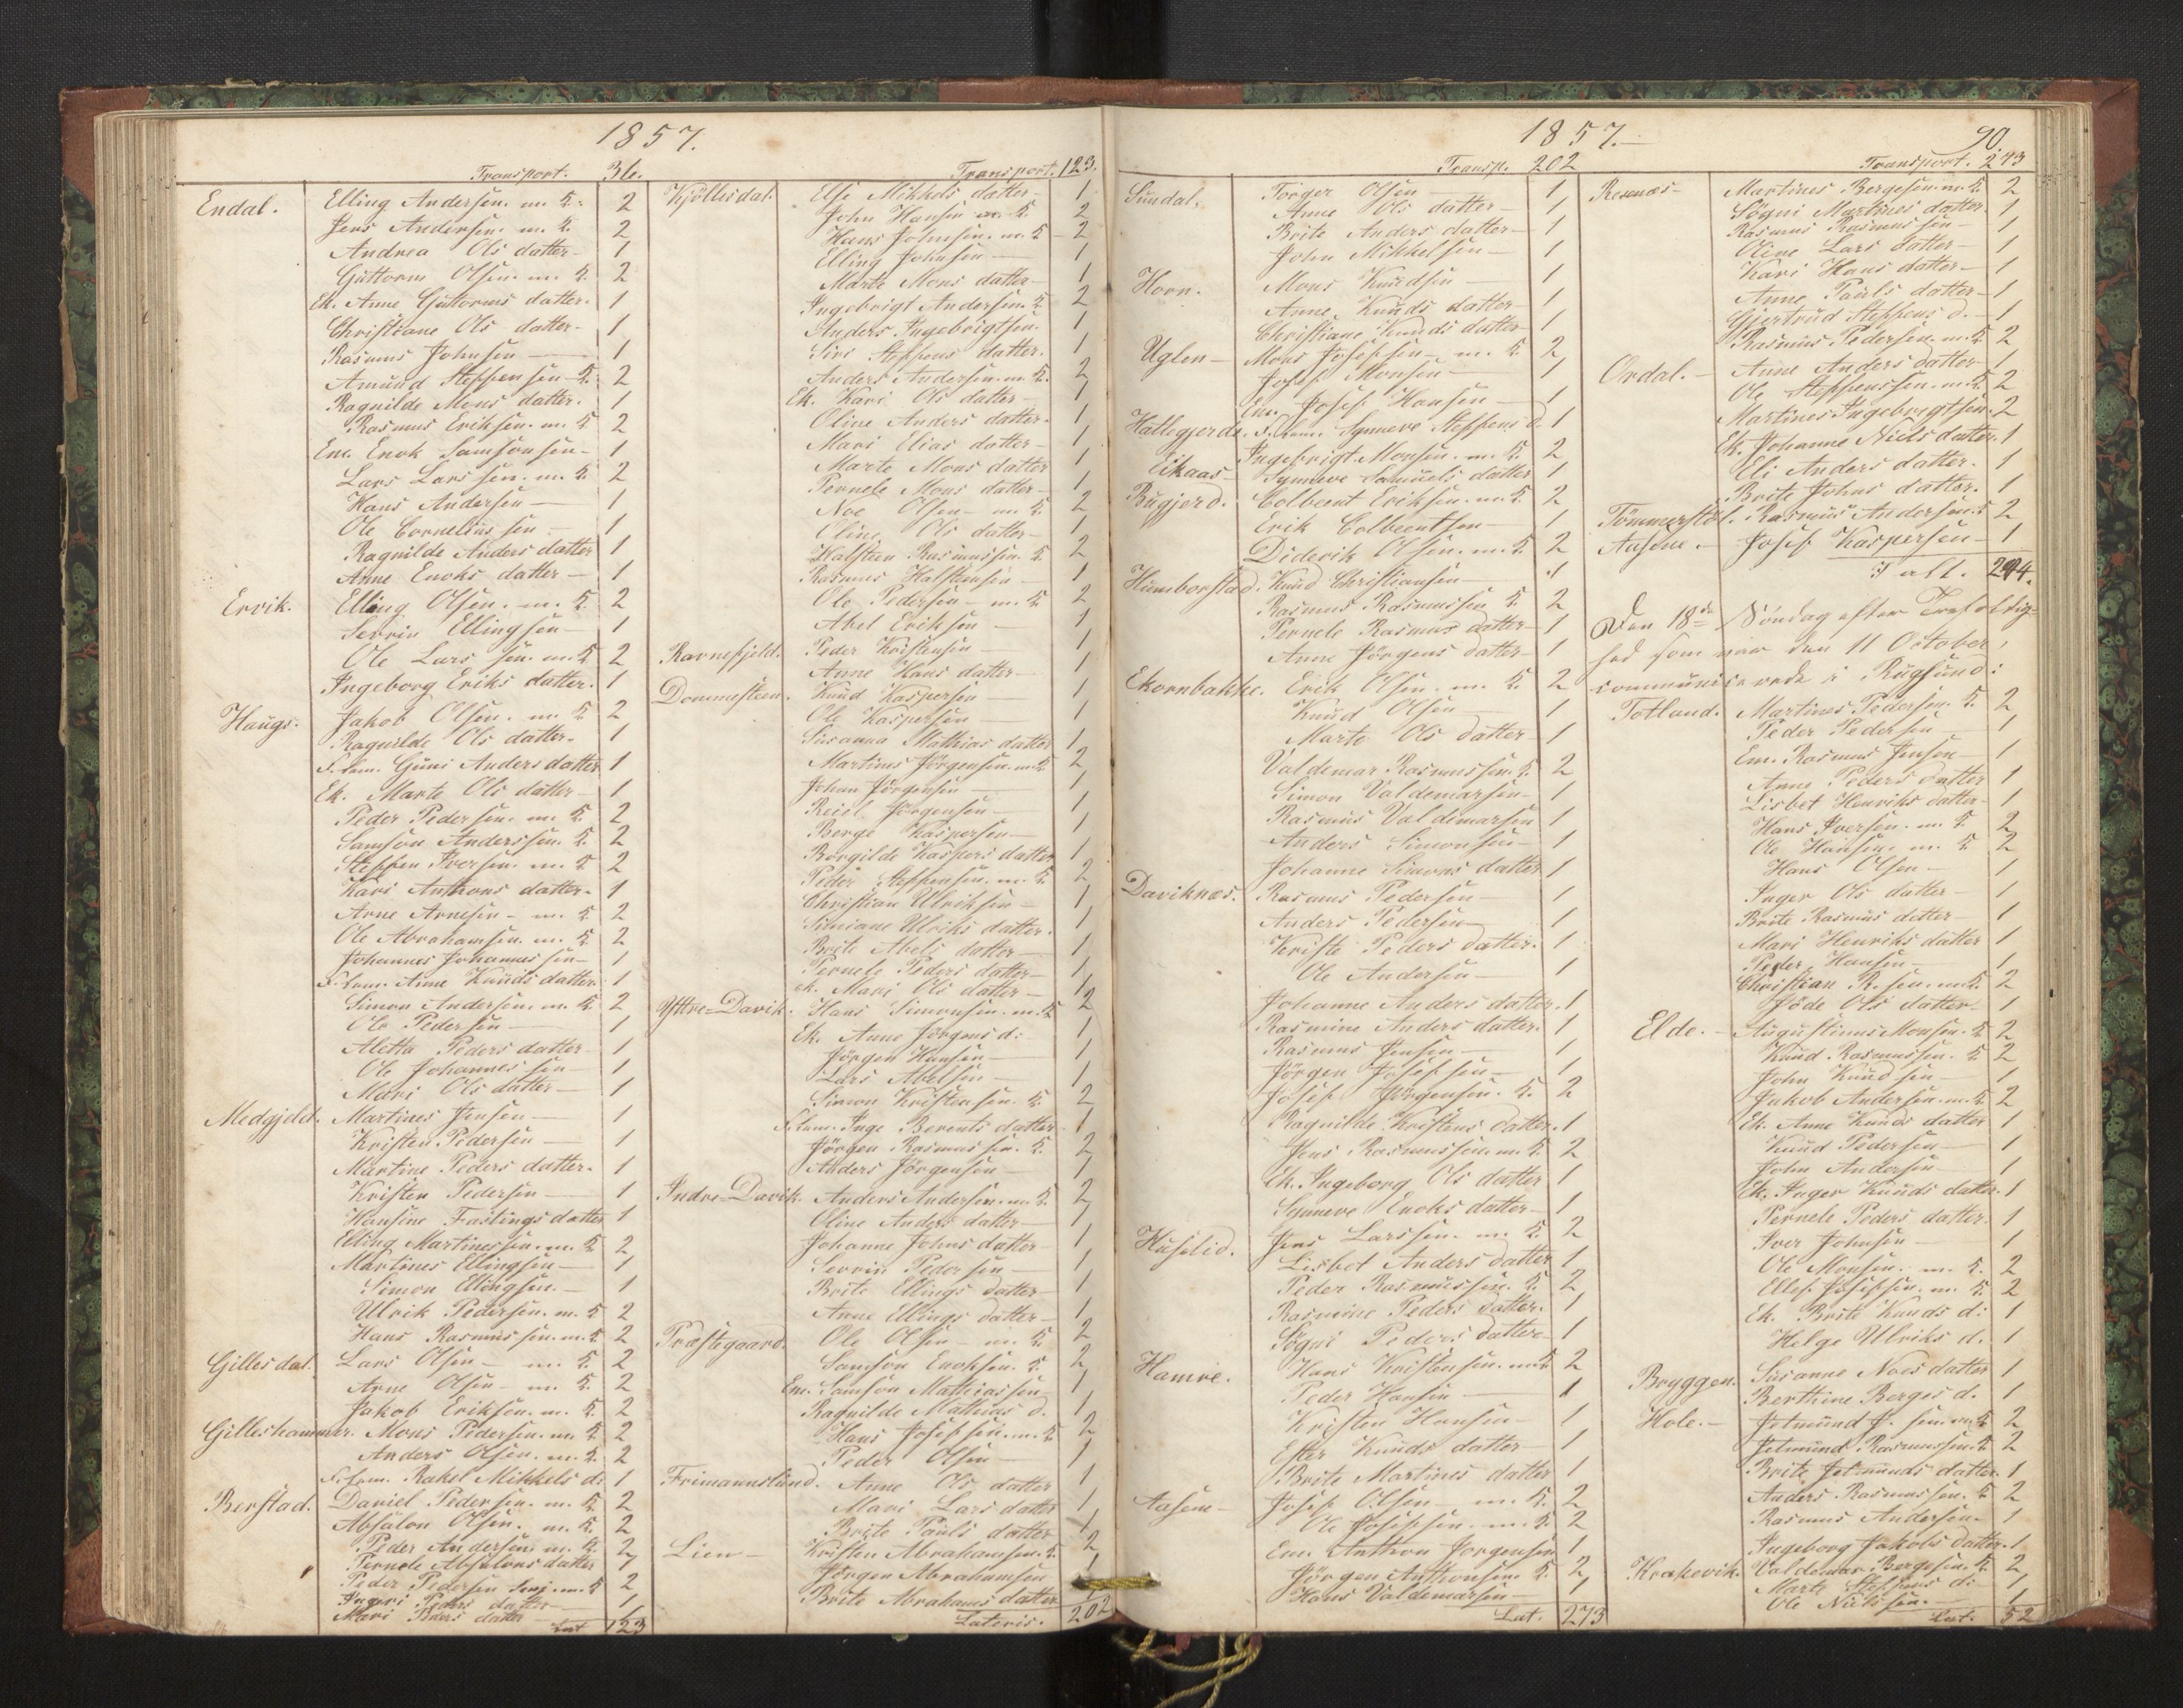 1857.
Transport. 36.
Endal. Elling Andersen. m. K. 2
Jens Andersen. m. K. 2
Andrea Ols datter 1
Guttorm Olsen. m. K. 2
Ek. Anne Guttorms datter. 1
Christiane Ols datter 1
Rasmus Johnsen 1
Amund Steffensen K. 2
Ragnilde Mons datter. 1
Rasmus Eriksen. m. K 2
Em. Enok Samsonsen 1
Lars Larssen. m. K 2
Hans Andersen 1
Ole Corneliussen 1
Ragnilde Anders datter 1
Anne Enoks datter 1
Ervik. Elling Olsen. m. K. 2
Severin Ellingsen 1
Ole Larssen. m. K 2
Ingeborg Eriks datter. 1
Haugs. Jakob Olsen. m. K 2
Ragnilde Ols datter. 1
F. lem. Guni Anders datter 1
Ek. Marte Ols datter 1
Peder Pedersen. m. K. 2
Samson Anderssen. K. 2
Steffen Iversen. m. K 2
Kari Anthons datter. 1
Arne Arnesen m. K 2
Ole Abrahamsen. m. K. 2
Johannes Johannessen 1
F. lem. Anne Knuds datter. 1
Simon Andersen. m. K 2
Ole Pedersen 1
Aletta Peders datter 1
Ole Johannessen 1
Mari Ols datter 1
Medgjeld. Martines Jensen 1
Kristen Pedersen 1
Martine Peders datter. 1
Kristen Pedersen 1
Hansine Fastings datter 1
Elling Martinessen. m. K 2
Martines Ellingsen 1
Simon Ellingsen. 1
Ulrik Pedersen. m. K 2
Hans Rasmussen. m. K 2
Gillesdal. Lars Olsen m. K. 2
Arne Olsen m. K. 2
Jakob Eriksen. m. K. 2
Gilleshammer. Mons Pedersen. m. K 2
Anders Olsen. m. K. 2
F. lem. Rakel Mikkels d: 1
Berstad. Daniel Pedersen. m. K. 2
Absalon Olsen. m. K. 2
Peder Andersen m. K. 2
Pernele Absalons datter 1
Peder Pedersen Senj. m. K 2
Ingeri Peders datter 1
Mari Peders datter 1
Lat 123
Transport. 123.
Kjöllesdal. Else Mikkels datter 1
John Hansen m. K. 2
Hans Johnsen. m. K 2
Elling Johnsen 1
Marte Mons datter 1
Ingebrigt Andersen. K 2
Anders Ingebrigtsen. 1
Siri Steffens datter. 1
Anders Andersen. m. K. 2
Ek. Kari Ols datter 1
Oline Anders datter. 1
Mari Elias datter 1
Marte Mons datter 1
Pernele Mons datter 1
Noe Olsen m. K 2
Oline Ols datter 1
Halsten Rasmussen. K 2
Rasmus Halstensen 1
Ole Pedersen m. K. 2
Abel Eriksen 1
Ravnefjeld. Peder Kristensen 1
Anne Hans datter 1
Dommesteen. Knud Kaspersen 1
Ole Kaspersen 1
Susanna Mathias datter 1
Martines Jörgensen. m. K 2
Johan Jörgensen 1
Reiel Jörgensen 1
Berge Kaspersen 1
Borgilde Kaspers datter 1
Peder Steffensen. m. K. 2
Christian Ulriksen 1
Simiane Ulriks datter. 1
Brite Abels datter 1
Pernele Peders datter 1
ek. Mari Ols datter 1
Yttre=Davik. Hans Simonsen. m. K 2
Ek. Anne Jörgens d: 1
Jörgen Hansen 1
Lars Abelsen 1
Simon Kristensen. K. 2
F. lem. Inge Berents datter 1
Jörgen Rasmussen. K. 2
Anders Jörgensen 1
Indre=Davik. Anders Andersen. m. K. 2
Eline Anders datter 1
Johanne Johns datter 1
Severin Pedersen 1
Brite Ellings datter 1
Anne Ellings datter 1
Præstegaard. Ole Olsen m. K. 2
Samson Enoksen. K. 2
Em. Samson Mathiassen 1
Ragnilde Mathias d. 1
Hans Josefsen. m. K 2
Peder Olsen 1
Frimannslund. Anne Ols datter 1
Mari Lars datter 1
Brite Pauls datter 1
Lien Kristen Abrahamsen. K. 2
Jörgen Abrahamsen 1
Brite Abrahams datter 1
Lateris. 202
1857.
Transp. 202
Sundal. Torger Olsen 1
Anne Ols datter 1
Brite Anders datter 1
John Mikkelsen 1
Horn. Mons Knudsen 1
Anne Knuds datter 1
Christiane Knuds datter 1
Uglen Mons Josefsen m. K. 2
Josef Monsen 1
Em. Josef Hansen 1
Hallegjerde. F. lem. Synneve Steffens d. 1
Ingebrigt Monsen. m. K. 2
Eikaas Synneve Samuels datter 1
Bugjerd. Colbent Eriksen. m. K. 2
Erik Colbentsen 1
Diderik Olsen. m. K 2
Humborstad. Knud Christiansen 1
Rasmus Rasmussen K. 2
Pernele Rasmus datter 1
Anne Jörgens datter 1
Ekornbakke. Erik Olsen m. K. 2
Knud Olsen 1
Marte Ols datter 1
Valdemar Rasmussen. K. 2
Simon Valdemarsen 1
Rasmus Valdemarsen 1
Anders Simonsen 1
Johanne Simons datter 1
Daviknæs. Rasmus Pedersen 1
Anders Pedersen 1
Kriste Peders datter. 1
Ole Andersen 1
Johanne Anders datter. 1
Rasmine Anders datter. 1
Rasmus Jensen 1
Jörgen Josefsen 1
Josef Jörgensen. K. 2
Ragnilde Kristens datter. 1
Jens Rasmussen. m. K 2
Ek. Ingeborg Ols datter 1
Synneve Enoks datter 1
Huselid. Jens Larssen. m. K. 2
Lisbet Anders datter 1
Peder Rasmussen. K. 2
Rasmine Peders datter. 1
Sögni Peders datter 1
Hamre. Hans Kristensen. m. K 2
Peder Hansen 1
Kristen Hansen 1
Ester Knuds datter 1
Brite Martines datter 1
Aasene Josef Olsen m. K. 2
Ole Josefsen. m. K. 2
Em. Anthon Jorgensen 1
Jörgen Anthonsen K. 2
Hans Valdemarsen 1
Lat. 273
90.
Transport. 273
Resenæs Martines Bergesen m. K. 2
Sögni Martines datter. 1
Rasmus Rasmussen 1
Oline Lars datter 1
Kari Hans datter 1
Anne Pauls datter 1
Gjertrud Steffens d. 1
Rasmus Pedersen. m. K 2
Ordal. Anne Anders datter 1
Ole Steffenssen. m. K. 2
Martines Ingebrigtsen. 2
Ek. Johanne Niels datter. 1
Eli Anders datter. 1
Brite Johns datter. 1
Tömmerstöl. Rasmus Andersen. K 2
Ausene. Josef Kaspersen 1
I alt. 294.
Den 18de Söndag efter Trefoldig=
hed som var den 11 October,
communicerede i Rugsund:
Totland. Martines Pedersen. K. 2
Peder Pedersen 1
Em. Rasmus Jensen 1
Anne Peders datter 1
Lisbet Henriks datter 1
Hans Iversen. m. K 2
Ole Hansen. m. K 2
Hans Olsen 1
Inger Ols datter 1
Brite Rasmus datter 1
Mari Henriks datter 1
Peder Hansen 1
Christian R.sen. m. K 2
Jöde Ols datter 1
Elde. Augustinus Monsen. K. 2
Knud Rasmussen. K 2
John Knudsen 1
Jakob Andersen. m. K. 2
Ek. Anne Knuds datter 1
Knud Pedersen 1
John Andersen 1
Ek. Inger Knuds datter. 1
Pernele Peders datter. 1
Iver Johnsen 1
Ole Monsen. m. K. 2
Ellef Josefsen. m. K 2
Ek. Brite Knuds d: 1
Helge Ulriks d. 1
Bryggen. Susanne Noes datter 1
Berthine Berges d. 1
Hole. Jetmund J.sen. m. K 2
Jetmund Rasmussen. K 2
Brite Jetmunds datter. 1
Anders Rasmussen. K 2
Rasmus Andersen. 1
Ingeborg Jakobs datter. 1
Krakevik. Valdemar Bergesen. K 2
Marte Steffens d: 1
Ole Nielssen. 1
Lat. 52